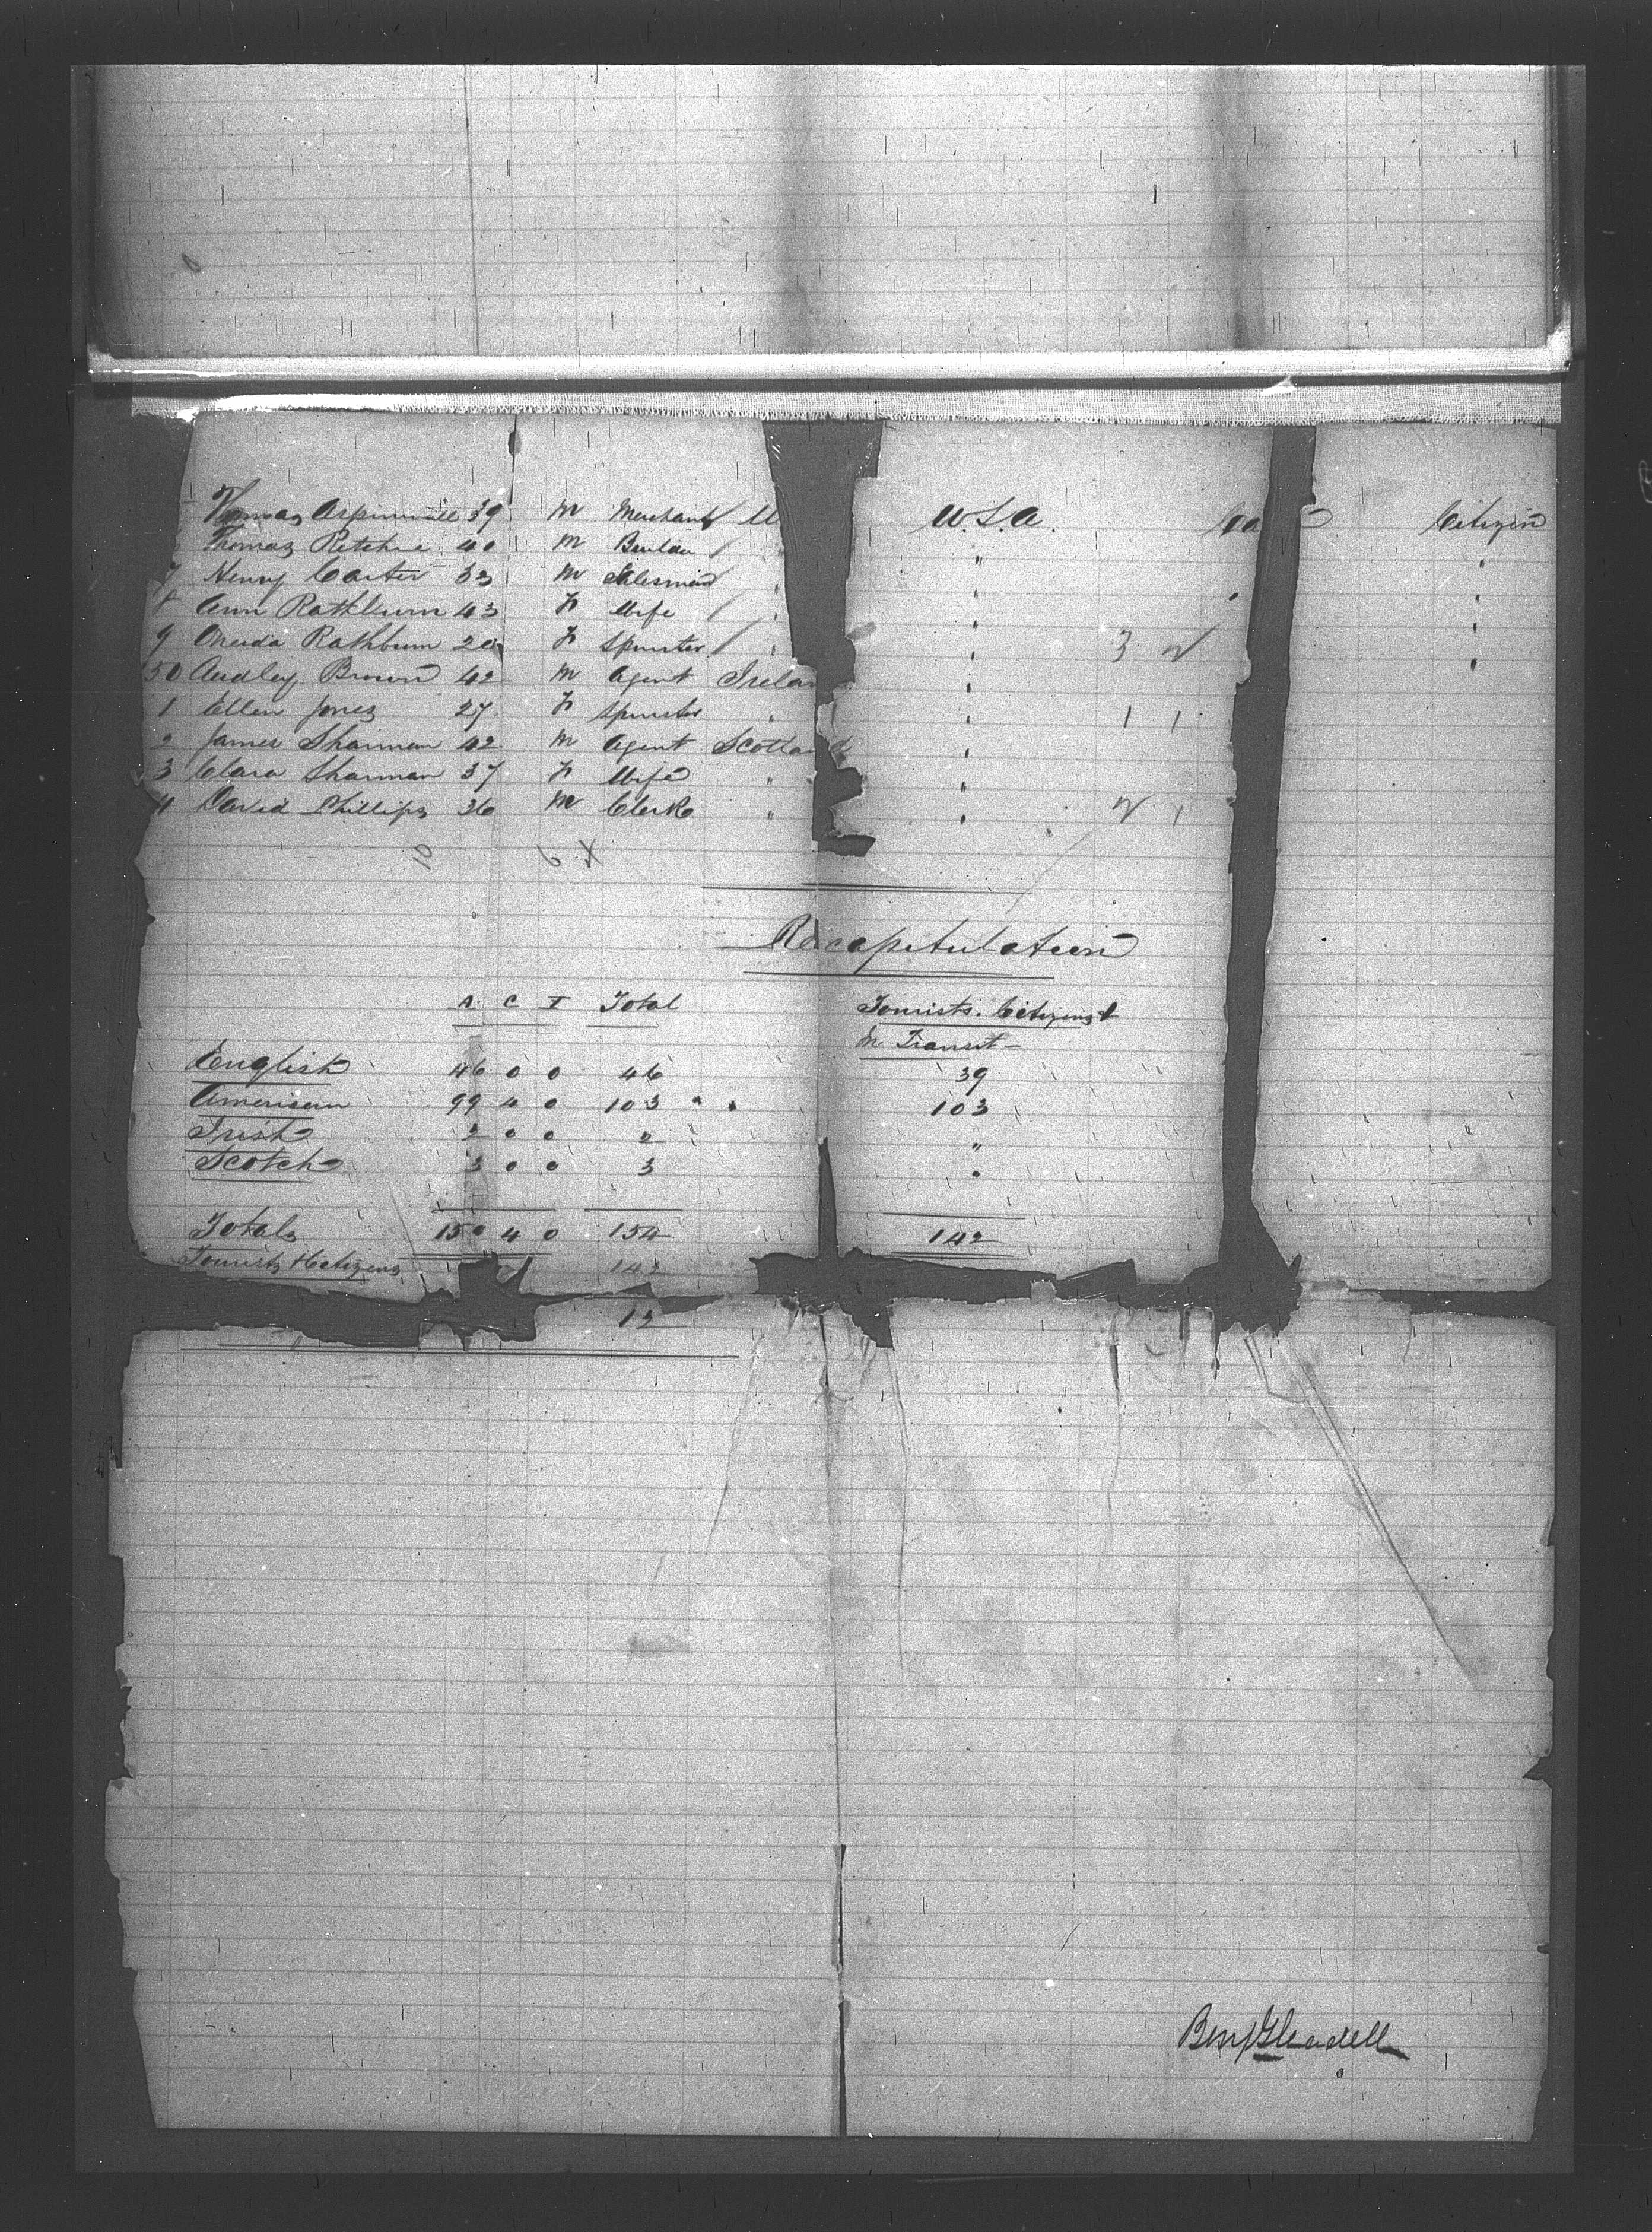 Thomas Aspinwall 39 M Merchant / U U.S.A. Ca Citizen
Thomas Ritchie 40 M Builder / " "
7 Henry Carter 33 M Salesman / " "
8 Ann Rathburn 43 F Wife / " "
9 Oneida Rathburn 20 F Spinster / " 3 2 "
50 Audley Brown 42 M Agent Irelan "
1 Ellen Jones 27 F Spinster " " 1 1
2 James Sharman 42 M Agent Scotland "
3 Clara Sharman 37 F Wife " "
4 David Phillips 36 M Clerk " " 2 1
10 6 4
Recapitulation
A C I Total Tourists. Citizens &
In Transit -
English 46 0 0 46 39
American 99 4 0 103 103
Irish 2 0 0 2 "
Scotch 3 0 0 3 "
Totals 150 4 0 154 142
Tourists & Citizens 142
12
Benj Gleadell